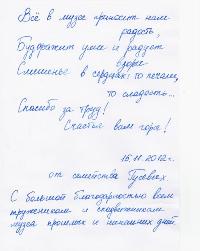 Всё в музее приносит нам
радость,
Будоражит умы и радует
взоры
Смешенье в сердцах: то печаль,
то сладость...
Спасибо за труд!
Счастья вам горы!
16.11.2012г.
от семейства Гусевых.
С большой благодарностью всем
труженикам и сподвижникам
музея прошлых и нынешних дней